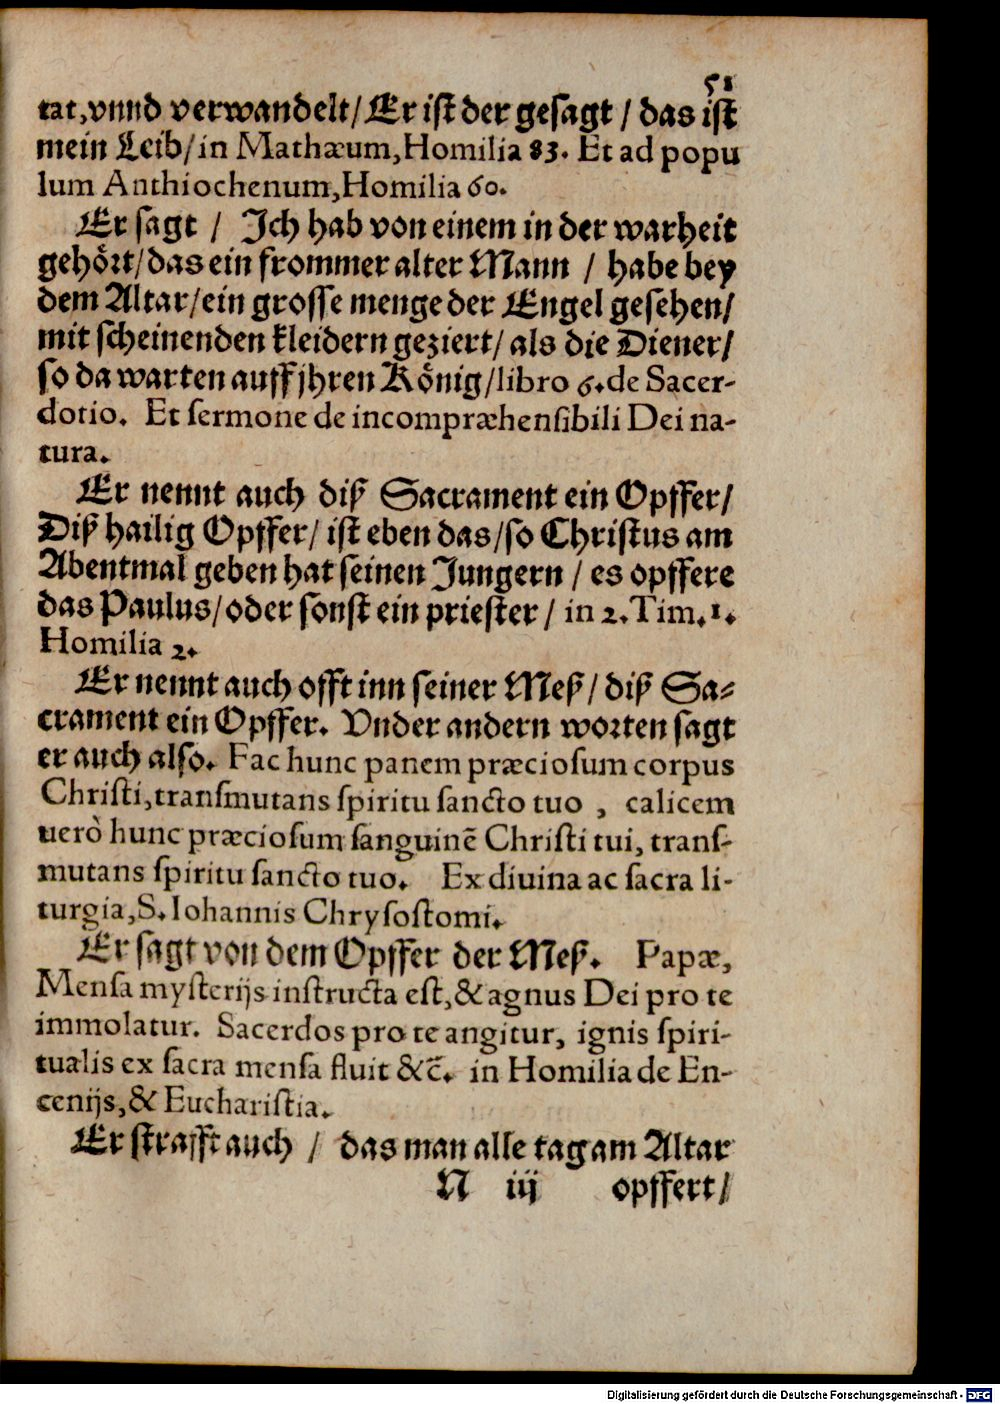 51
tat, vnnd verwandelt / Er ist der gesagt / das ist
mein Leib / in Mathæum, Homilia 83. Et ad popu
lum Anthiochenum, Homilia 60.
Er sagt / Ich hab von einem in der warheit
gehört / das ein frommer alter Mann / habe bey
dem Altar / ein grosse menge der Engel gesehen /
mit scheinenden kleidern geziert / als die Diener /
so da warten auff jhren König / libro 6. de Sacer-
dotio. Et sermone de incompræhensibili Dei na-
tura.
Er nennt auch diß Sacrament ein Opffer /
Diß hailig Opffer / ist eben das / so Christus am
Abentmal geben hat seinen Jungern / es opffere
das Paulus / oder sonst ein priester / in 2. Tim. 1.
Homilia 2.
Er nennt auch offt inn seiner Meß / diß Sa-
crament ein Opffer. Vnder andern worten sagt
er auch also. Fac hunc panem præciosum corpus
Christi, transmutans spiritu sancto tuo, calicem
uerò hunc præciosum sanguinē Christi tui, trans-
mutans spiritu sancto tuo. Ex diuina ac sacra li-
turgia, S. Iohannis Chrysostomi.
Er sagt von dem Opffer der Meß. Papæ,
Mensa mysterijs instructa est, & agnus Dei pro te
immolatur. Sacerdos pro te angitur, ignis spiri-
tualis ex sacra mensa fluit &c̄. in Homilia de En-
cenijs, & Eucharistia.
Er strafft auch / das man alle tag am Altar
N iij opffert /
Digitalisierung gefördert durch die Deutsche Forschungsgemeinschaft - DFG